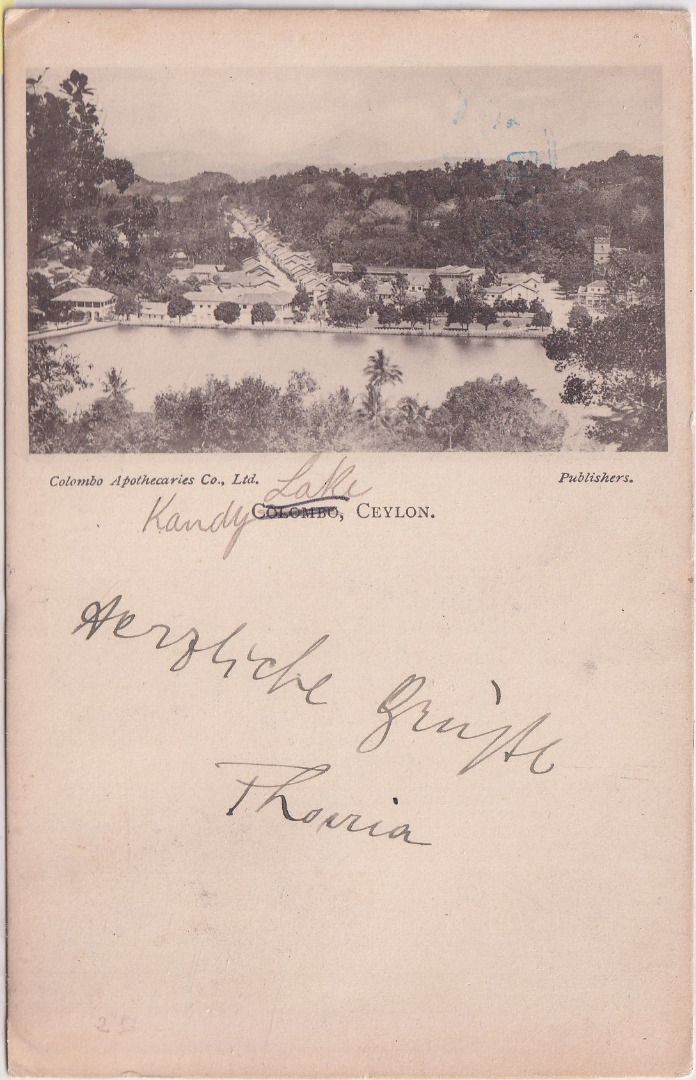 Colombo Apothecaries Co., Ltd. Publishers.
Kandy Lake
COLOMBO, CEYLON.
Herzliche Grüße